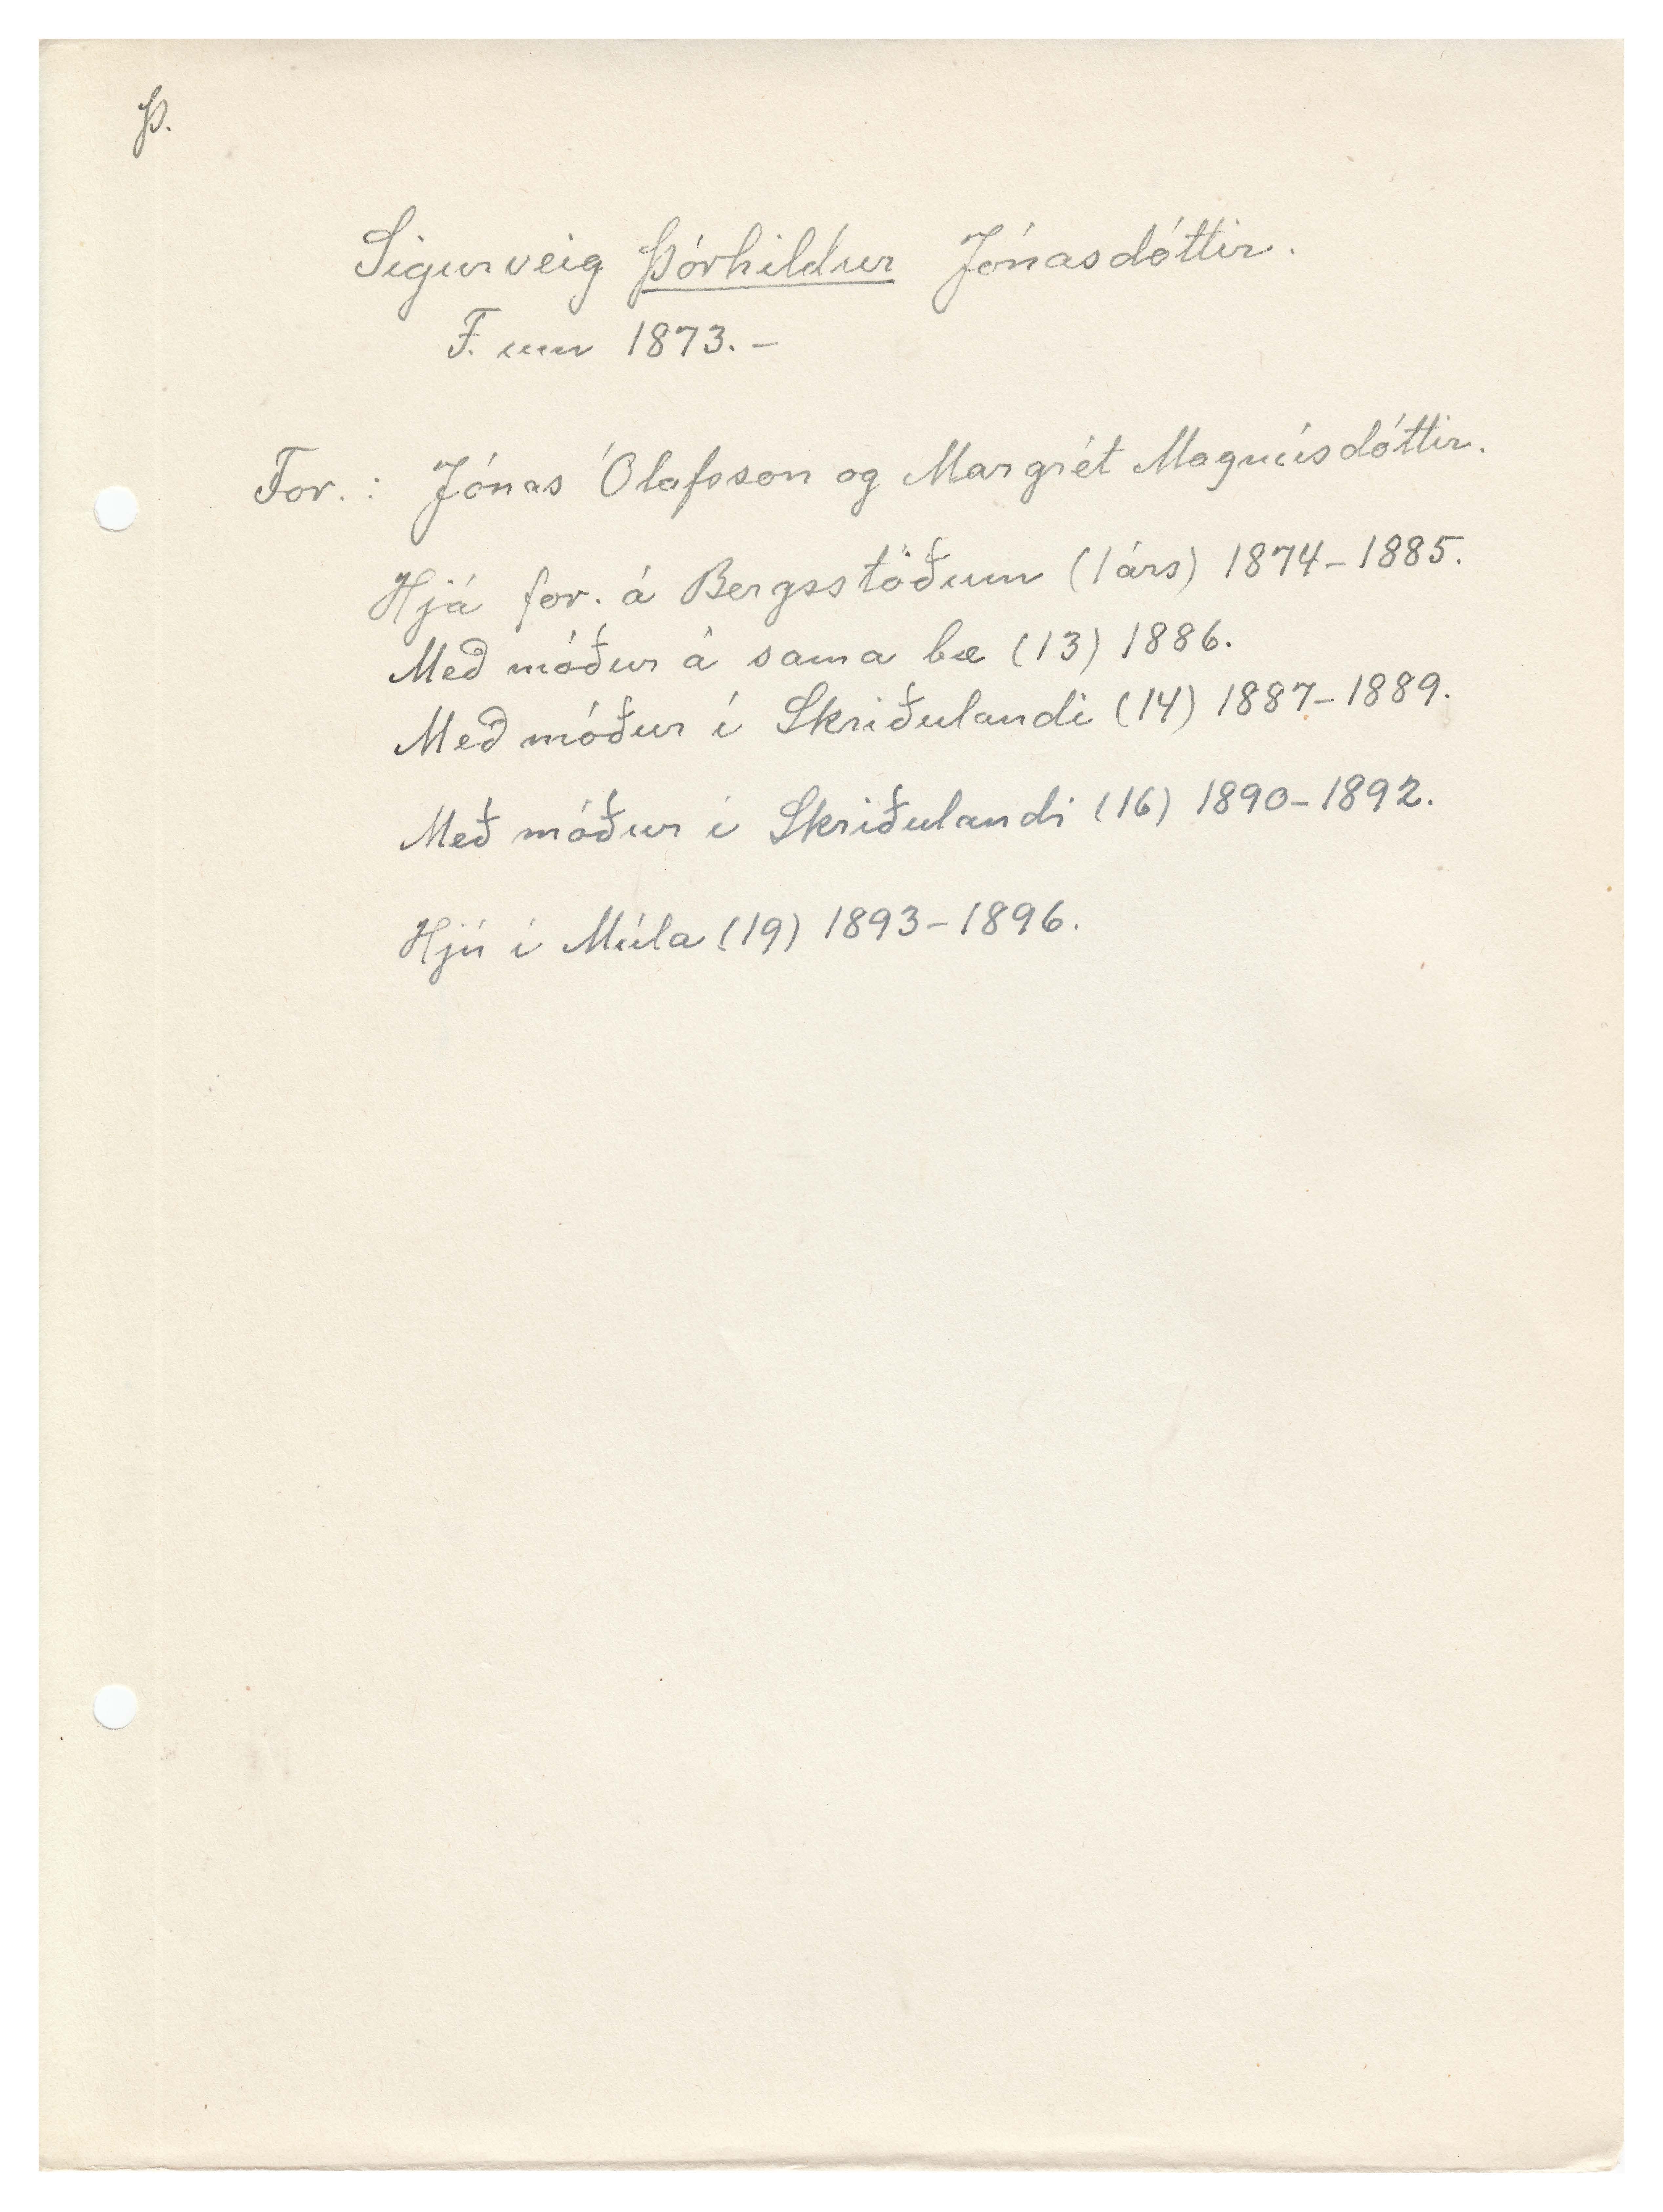 Þ.
Sigurveig Þórhildur Jónasdóttir.
F. um 1873. –
For. : Jónas Ólafsson og Margrét Magnúsdóttir.
Hjá for. á Bergsstöðum (1 árs) 1874 – 1885.
Með móður á sama bæ (13) 1886.
Með móður í Skriðulandi (14) 1887 – 1889.
Með móður í Skriðulandi (16) 1890 – 1892.
Hjú í Múla (19) 1893 – 1896.